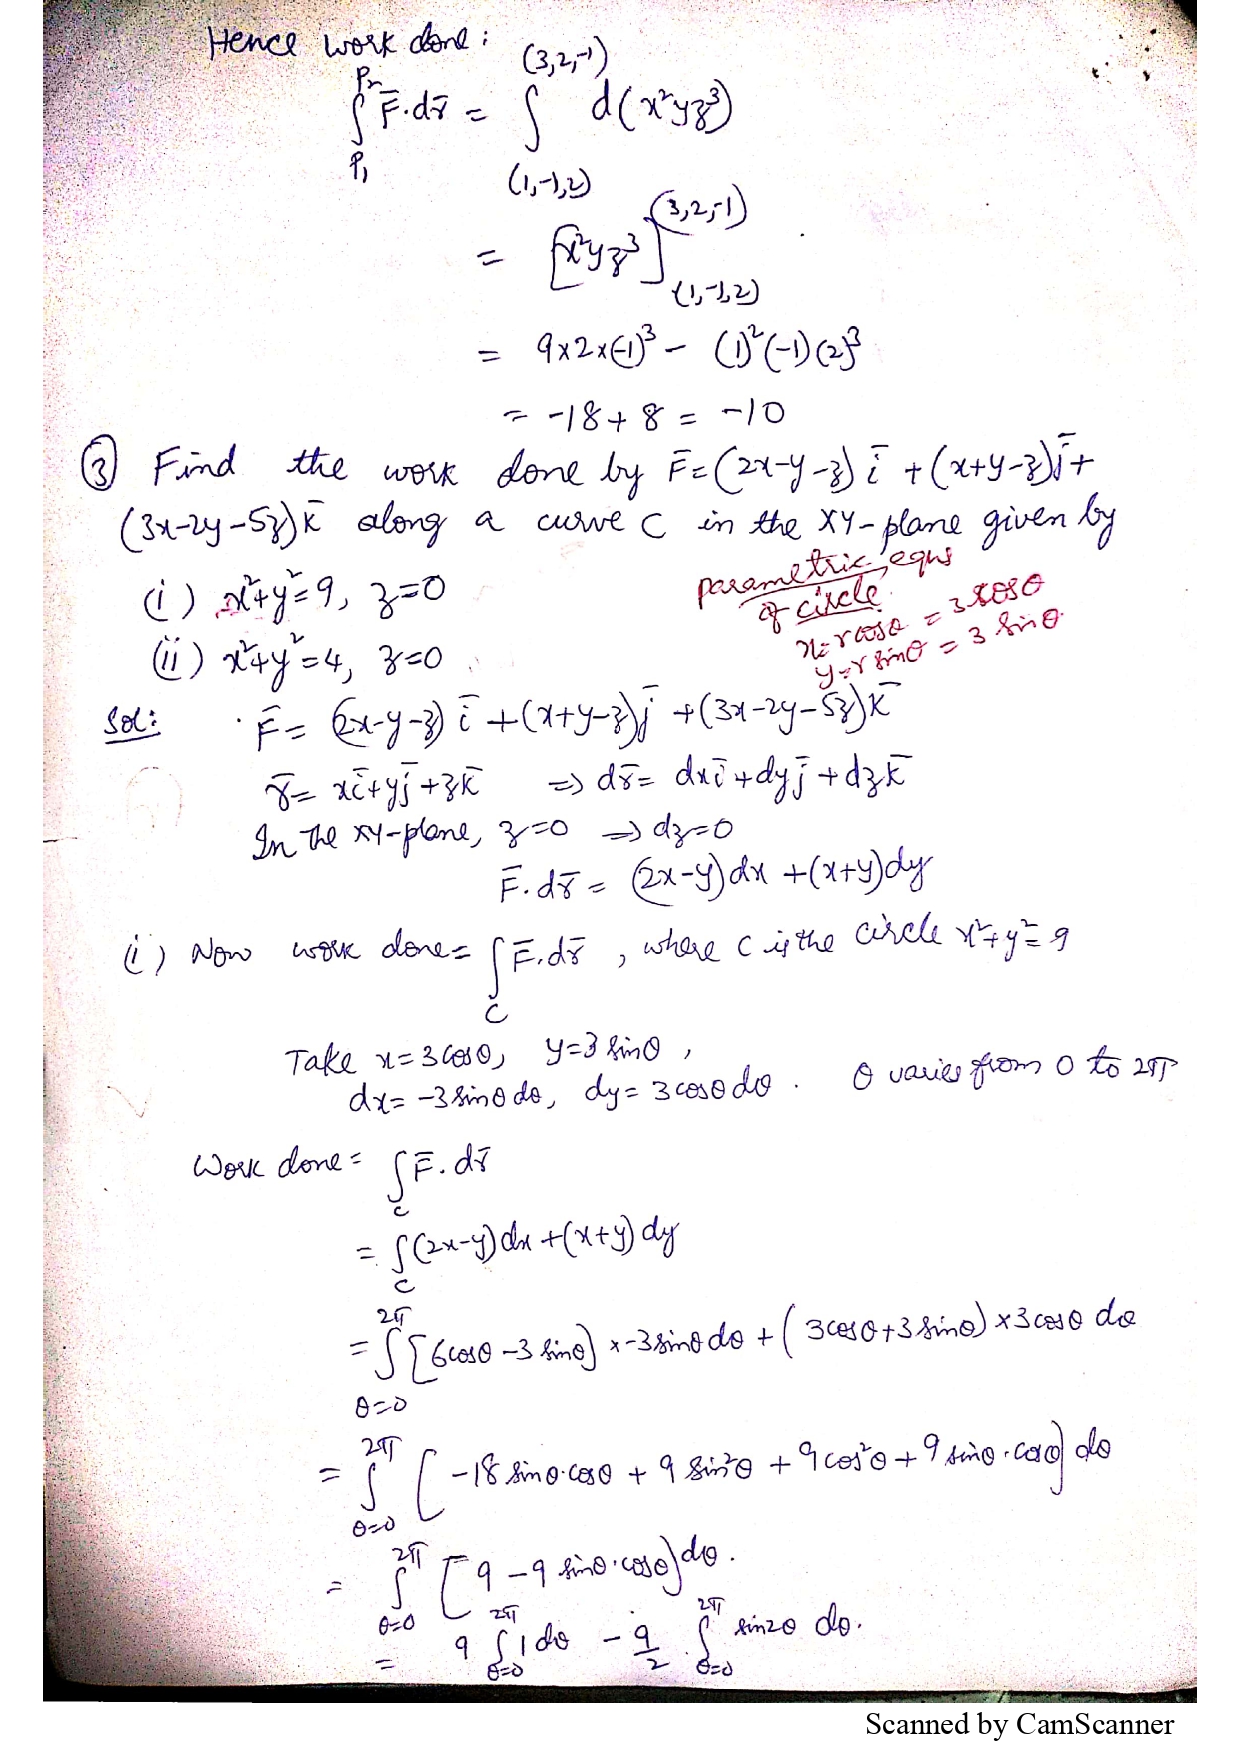 Hence work done :
∫_{P₁}^{P₂} F̄.dr̄ = ∫_{(1,-1,2)}^{(3,2,-1)} d(x²yz³)
= [x²yz³]_{(1,-1,2)}^{(3,2,-1)}
= 9×2×(-1)³ - (1)²(-1)(2)³
= -18 + 8 = -10
③ Find the work done by F̄ = (2x-y-z) ī + (x+y-z)j̄ +
(3x-2y-5z)k̄ along a curve C in the XY-plane given by
(i) x²+y²=9, z=0
(ii) x²+y²=4, z=0
parametric equs
of circle
x=r cosθ = 3 cosθ
y=r sinθ = 3 sinθ
Sol: F̄ = (2x-y-z) ī + (x+y-z)j̄ + (3x-2y-5z)k̄
r̄ = xī+yj̄+zk̄ ⇒ dr̄ = dxī+dyj̄+dzk̄
In the xy-plane, z=0 ⇒ dz=0
F̄.dr̄ = (2x-y)dx + (x+y)dy
(i) Now work done = ∫_C F̄.dr̄ , where C is the circle x²+y²=9
Take x=3cosθ, y=3 sinθ ,
dx= -3 sinθ dθ, dy= 3 cosθ dθ . θ varies from 0 to 2π
Work done = ∫_C F̄.dr̄
= ∫_C (2x-y)dx + (x+y)dy
= ∫_{θ=0}^{2π} [6cosθ - 3 sinθ] × -3sinθ dθ + (3cosθ+3 sinθ) × 3cosθ dθ
= ∫_{θ=0}^{2π} [-18 sinθ.cosθ + 9 sin²θ + 9cos²θ + 9 sinθ.cosθ] dθ
= ∫_{θ=0}^{2π} [9 - 9 sinθ.cosθ] dθ .
= 9 ∫_{θ=0}^{2π} 1 dθ - 9/2 ∫_{θ=0}^{2π} sin2θ dθ.
Scanned by CamScanner